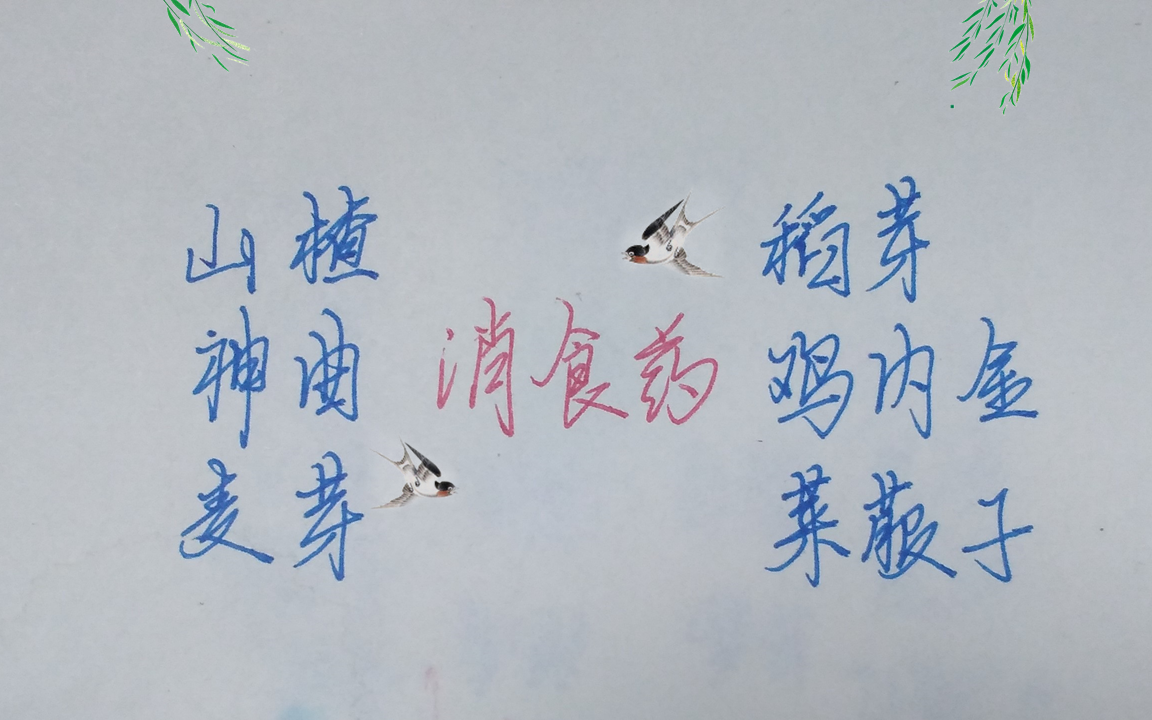 山楂
神曲
麦芽
消食药
稻芽
鸡内金
莱菔子